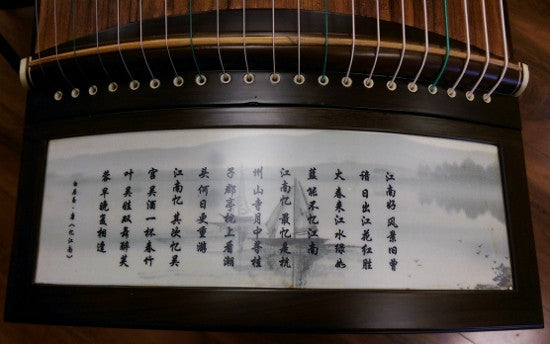 江南好风景旧曾
谙日出江花红胜
火春来江水绿如
蓝能不忆江南
江南忆最忆是杭
州山寺月中寻桂
子郡亭枕上看潮
头何日更重游
江南忆其次忆吴
宫吴酒一杯春竹
叶吴娃双舞醉芙
蓉早晚复相逢
白居易·唐《忆江南》